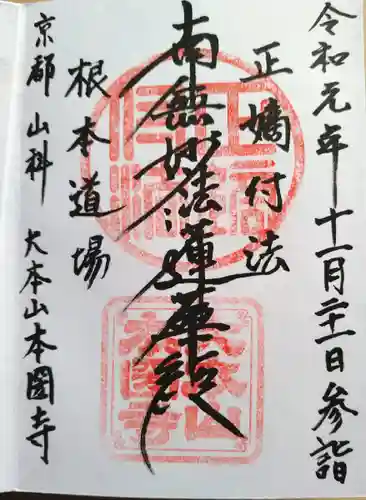 令和元年十一月二十二日参詣
正嫡付法
南無妙法蓮華経
根本道場
京都山科 大本山本圀寺